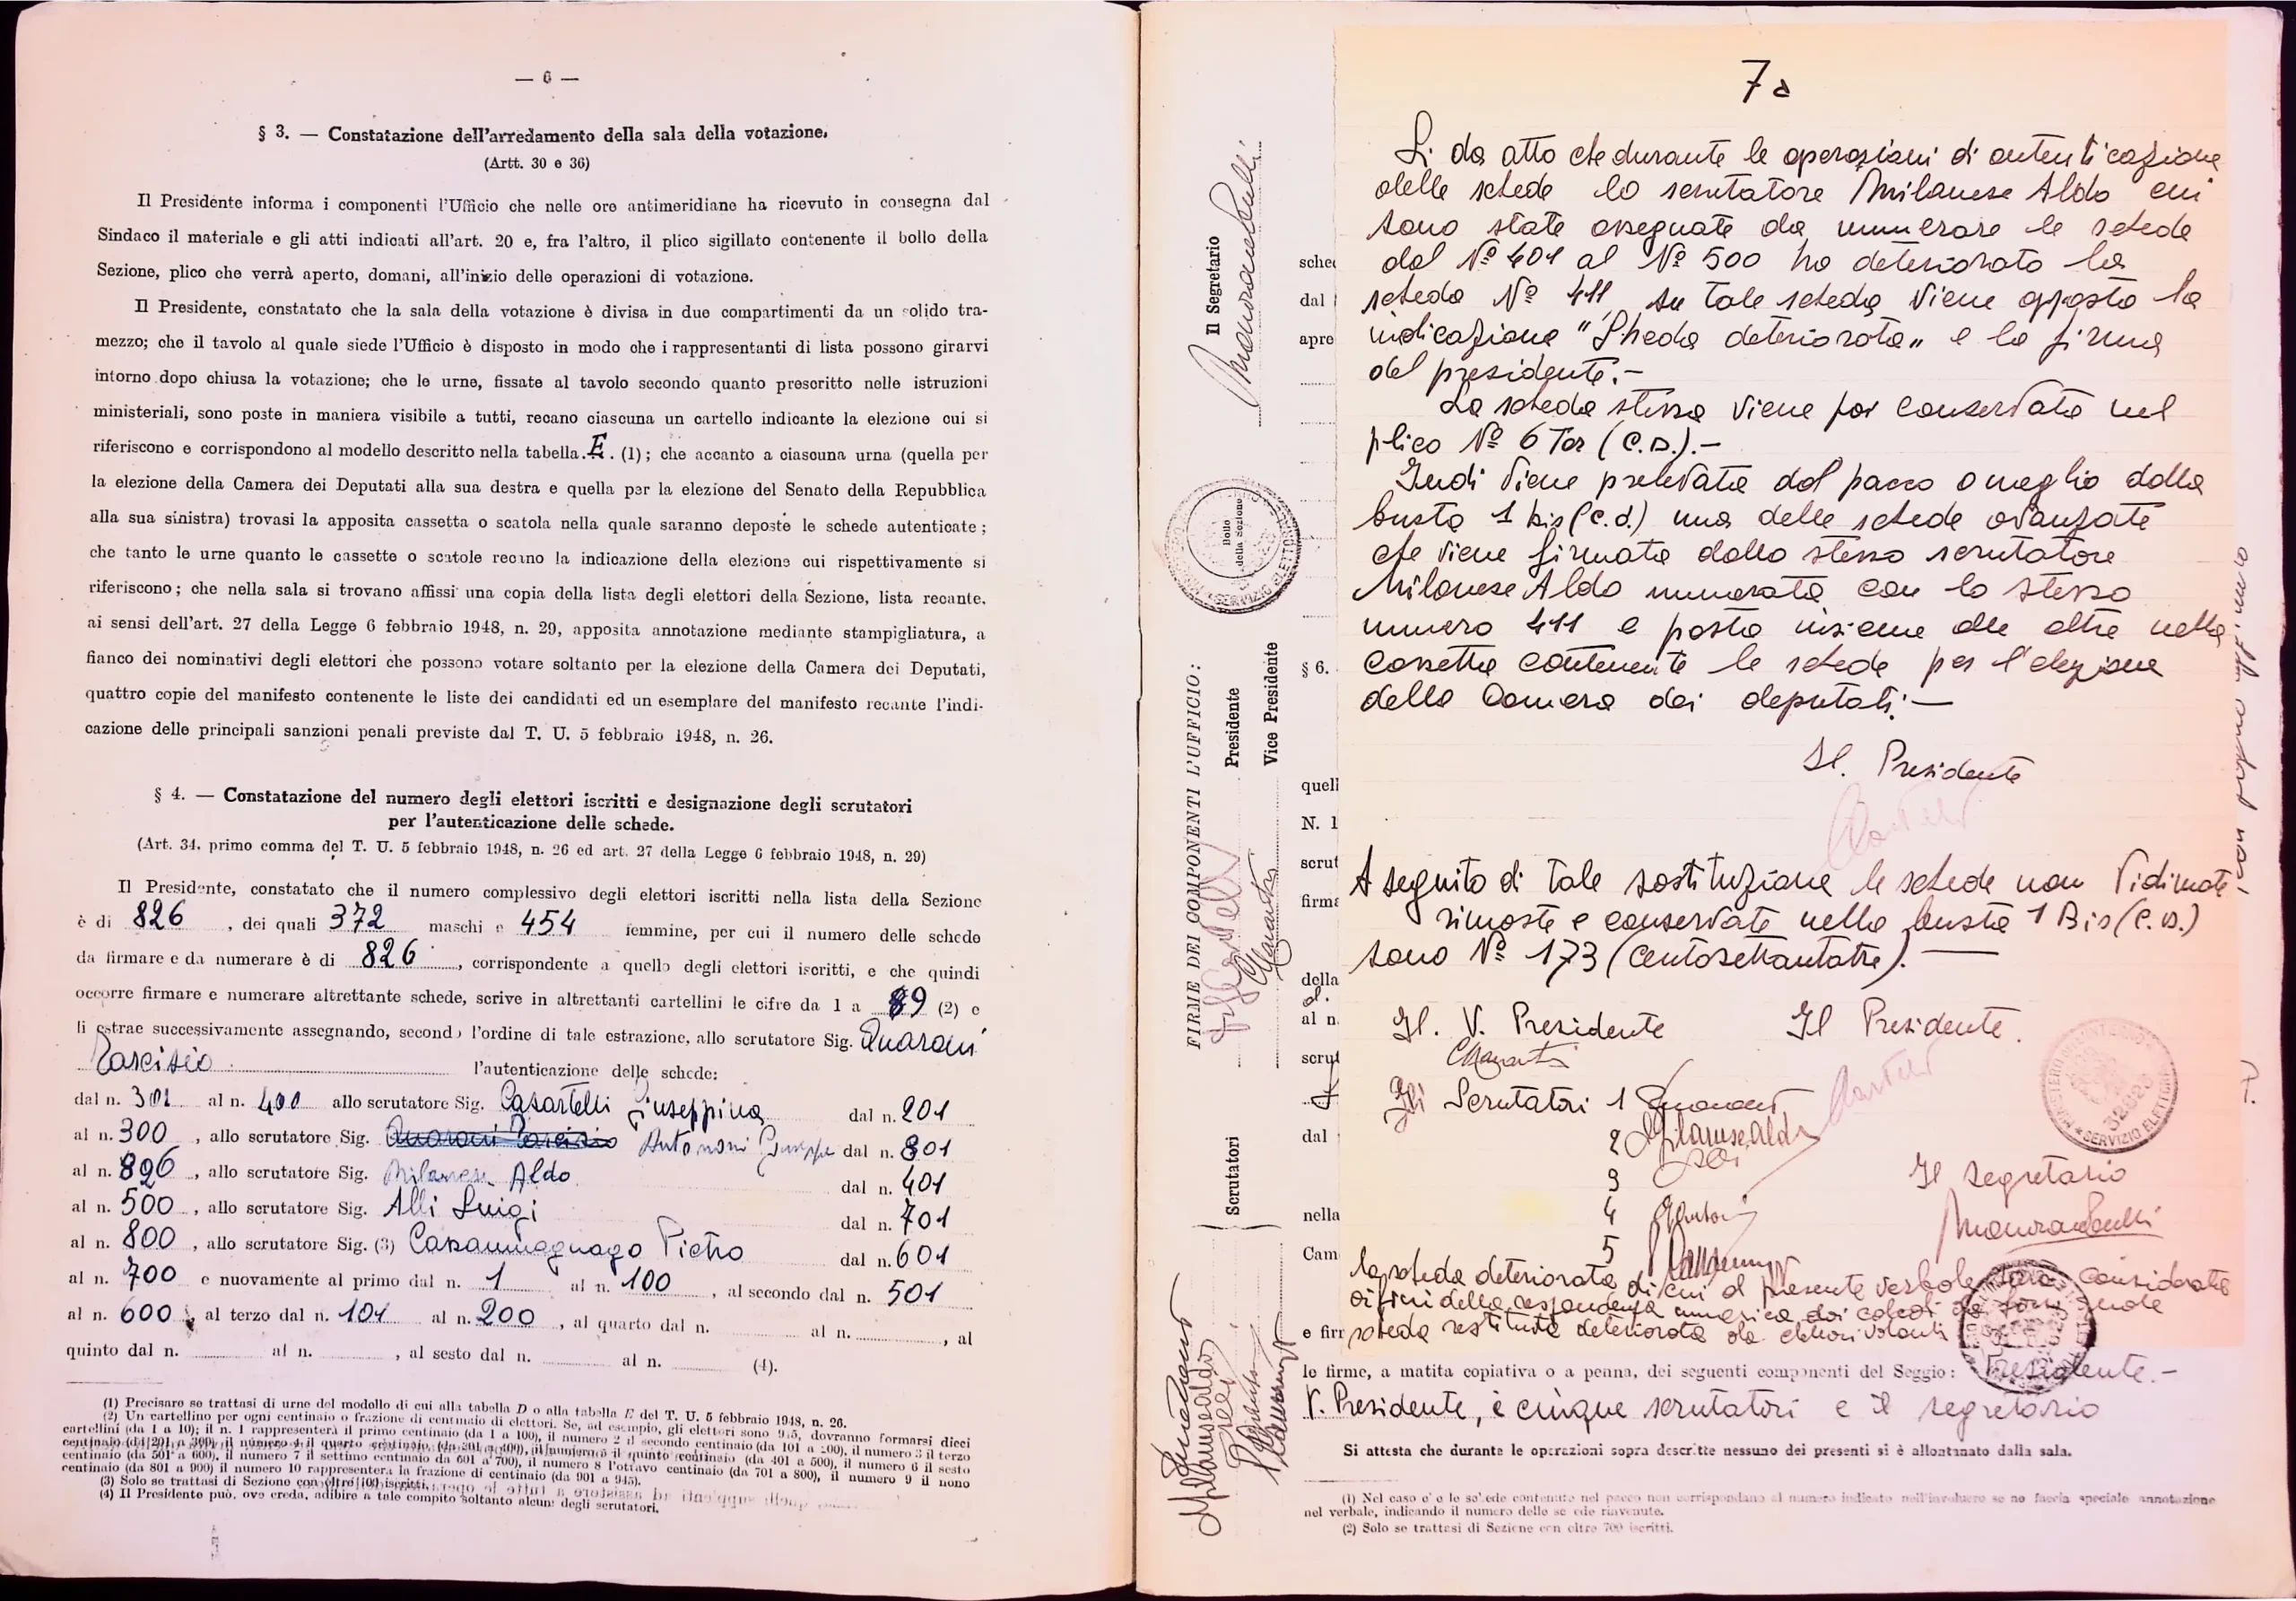 — 6 —
§ 3. — Constatazione dell'arredamento della sala della votazione.
(Artt. 30 e 36)
Il Presidente informa i componenti l'Ufficio che nelle ore antimeridiane ha ricevuto in consegna dal
Sindaco il materiale e gli atti indicati all'art. 20 e, fra l'altro, il plico sigillato contenente il bollo della
Sezione, plico che verrà aperto, domani, all'inizio delle operazioni di votazione.
Il Presidente, constatato che la sala della votazione è divisa in due compartimenti da un solido tra-
mezzo; che il tavolo al quale siede l'Ufficio è disposto in modo che i rappresentanti di lista possono girarvi
intorno dopo chiusa la votazione; che le urne, fissate al tavolo secondo quanto prescritto nelle istruzioni
ministeriali, sono poste in maniera visibile a tutti, recano ciascuna un cartello indicante la elezione cui si
riferiscono e corrispondono al modello descritto nella tabella. E. (1); che accanto a ciascuna urna (quella per
la elezione della Camera dei Deputati alla sua destra e quella per la elezione del Senato della Repubblica
alla sua sinistra) trovasi la apposita cassetta o scatola nella quale saranno deposte le schede autenticate;
che tanto le urne quanto le cassette o scatole recano la indicazione della elezione cui rispettivamente si
riferiscono; che nella sala si trovano affissi una copia della lista degli elettori della Sezione, lista recante,
ai sensi dell'art. 27 della Legge 6 febbraio 1948, n. 29, apposita annotazione mediante stampigliatura, a
fianco dei nominativi degli elettori che possono votare soltanto per la elezione della Camera dei Deputati,
quattro copie del manifesto contenente le liste dei candidati ed un esemplare del manifesto recante l'indi-
cazione delle principali sanzioni penali previste dal T. U. 5 febbraio 1948, n. 26.
§ 4. — Constatazione del numero degli elettori iscritti e designazione degli scrutatori
per l'autenticazione delle schede.
(Art. 34. primo comma del T. U. 5 febbraio 1948, n. 26 ed art. 27 della Legge 6 febbraio 1948, n. 29)
Il Presidente, constatato che il numero complessivo degli elettori iscritti nella lista della Sezione
è di 826 , dei quali 372 maschi e 454 femmine, per cui il numero delle schede
da firmare e da numerare è di 826 , corrispondente a quello degli elettori iscritti, e che quindi
occorre firmare e numerare altrettante schede, scrive in altrettanti cartellini le cifre da 1 a 89 (2) e
li estrae successivamente assegnando, secondo l'ordine di tale estrazione, allo scrutatore Sig. Quaroni
Tarcisio l'autenticazione delle schede:
dal n. 301 al n. 400 allo scrutatore Sig. Casartelli Giuseppina dal n. 201
al n. 300 , allo scrutatore Sig. Quaroni Tarcisio Antononi Giuseppe dal n. 801
al n. 826 , allo scrutatore Sig. Milanese Aldo dal n. 401
al n. 500 , allo scrutatore Sig. Alli Luigi dal n. 701
al n. 800 , allo scrutatore Sig. (3) Casammagnago Pietro dal n. 601
al n. 700 e nuovamente al primo dal n. 1 al n. 100 , al secondo dal n. 501
al n. 600 , al terzo dal n. 101 al n. 200 , al quarto dal n. al n. , al
quinto dal n. al n. , al sesto dal n. al n. (4).
(1) Precisare se trattasi di urne del modello di cui alla tabella D o alla tabella E del T. U. 5 febbraio 1948, n. 26.
(2) Un cartellino per ogni centinaio o frazione di centinaio di elettori. Se, ad esempio, gli elettori sono 945, dovranno formarsi dieci
cartellini (da 1 a 10); il n. 1 rappresenterà il primo centinaio (da 1 a 100), il numero 2 il secondo centinaio (da 101 a 200), il numero 3 il terzo
centinaio (da 201 a 300), il numero 4 il quarto centinaio (da 301 a 400), il numero 5 il quinto centinaio (da 401 a 500), il numero 6 il sesto
centinaio (da 501 a 600), il numero 7 il settimo centinaio (da 601 a 700), il numero 8 l'ottavo centinaio (da 701 a 800), il numero 9 il nono
centinaio (da 801 a 900) il numero 10 rappresenterà la frazione di centinaio (da 901 a 945).
(3) Solo se trattasi di Sezione con oltre 700 iscritti.
(4) Il Presidente può, ove creda, adibire a tale compito soltanto alcuni degli scrutatori.
Il Segretario
Bollo
della Sezione
FIRME DEI COMPONENTI L'UFFICIO:
Presidente
Vice Presidente
Scrutatori
Milanese Aldo
sche
dal
apre
§ 6.
quell
N. 1
scrut
firma
della
d.
al n.
scrut
dal
nella
Cam
e firm
7a
Si da atto che durante le operazioni di autenticazione
delle schede lo scrutatore Milanese Aldo cui
sono state assegnate da numerare le schede
dal Nº 401 al Nº 500 ha deteriorato la
scheda Nº 411, su tale scheda viene apposta la
indicazione "Sheda deteriorata" e la firma
del presidente.-
La scheda stessa viene poi conservata nel
plico Nº 6 Ter (C.D.).-
Indi viene prelevata dal pacco o meglio dalla
busta 1 bis (C.d.) una delle schede avanzate
che viene firmata dallo stesso scrutatore
Milanese Aldo numerata con lo stesso
numero 411 e posta insieme alle altre nella
cassetta contenente le schede per l'elezione
della Camera dei deputati.—
Il. Presidente
A seguito di tale sostituzione le schede non vidimate
rimoste e conservate nella busta 1 Bis (C.D.)
sono Nº 173 (centosettantatre).—
Il. V. Presidente Il Presidente.
Gli Scrutatori 1
2 Milanese Aldo
3
4
5
Il Segretario
MINISTERO DELL'INTERNO
SERVIZIO ELETTORALE
la scheda deteriorata di cui al presente verbale sarà considerata
ai fini della rispondenza numerica dei calcoli
scheda restituita deteriorata da elettori votanti
le firme, a matita copiativa o a penna, dei seguenti componenti del Seggio: Presidente.-
V. Presidente, i cinque scrutatori e il segretario
Si attesta che durante le operazioni sopra descritte nessuno dei presenti si è allontanato dalla sala.
(1) Nel caso che le schede contenute nel pacco non corrispondano al numero indicato nell'involucro se ne faccia speciale annotazione
nel verbale, indicando il numero delle schede rinvenute.
(2) Solo se trattasi di Sezione con oltre 700 iscritti.